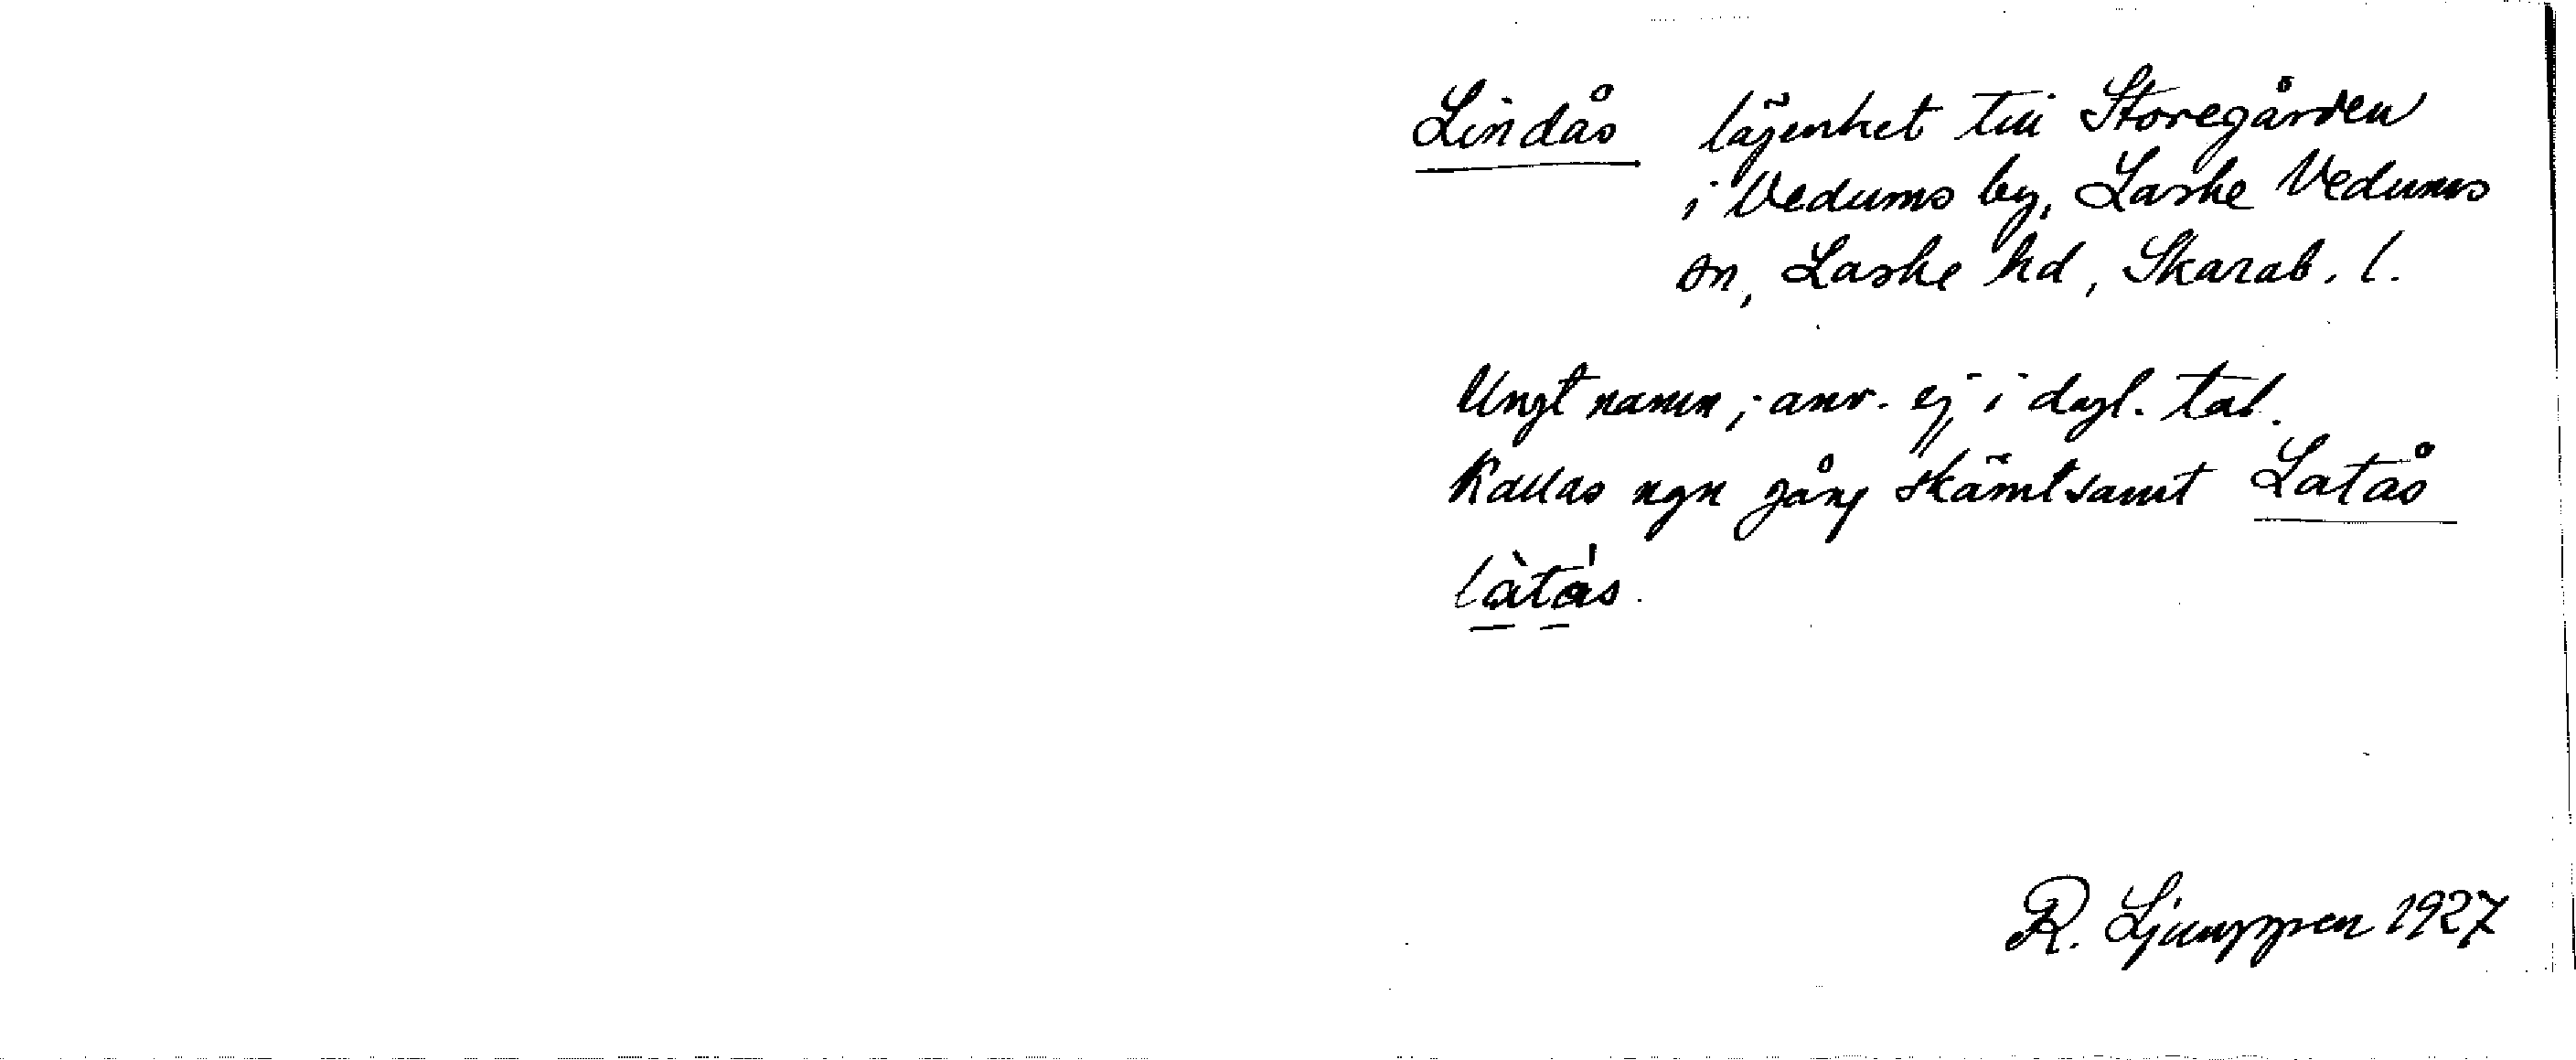 Lindås lägenhet till Storegården
i Vedums by, Laske Vedums
sn, Laske hd, Skarab. l.
Ungt namn; anv. ej i dagl. tal.
Kallas ngn gång skämtsamt Latås
làtás.
R. Ljunggren 1927